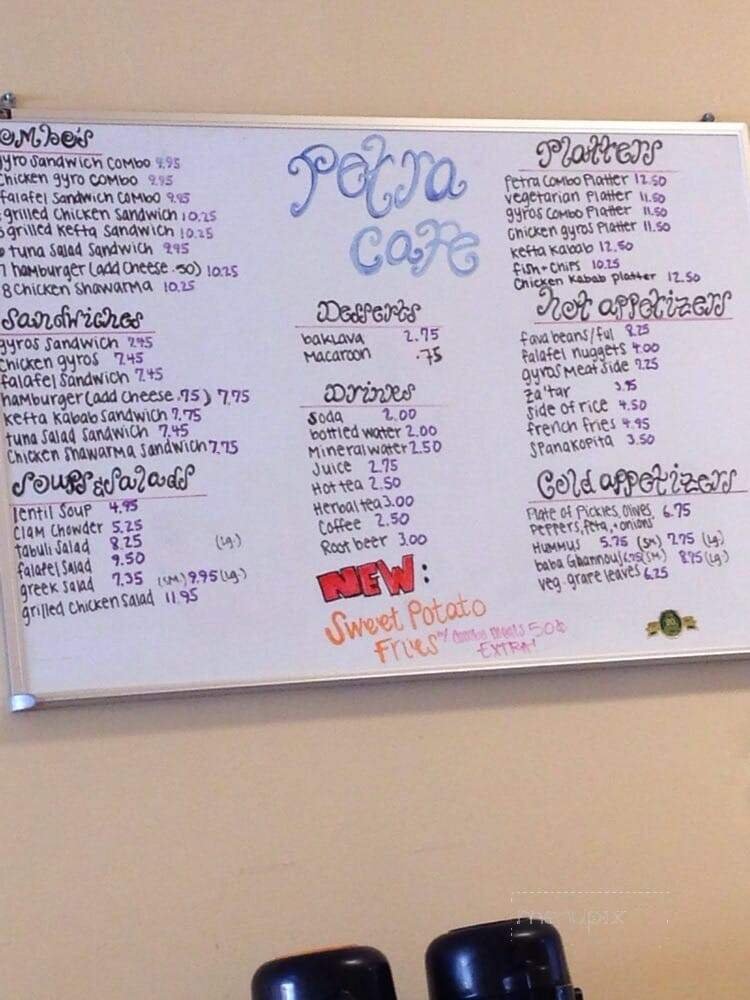 ombo's
gyro Sandwich Combo 9.95
Chicken gyro Combo 9.95
falafel Sandwich Combo 9.95
grilled Chicken Sandwich 10.25
grilled Kefta Sandwich 10.25
tuna Salad Sandwich 9.95
7 hamburger (add Cheese .50) 10.25
8 Chicken Shawarma 10.25
Sandwiches
gyros Sandwich 7.45
Chicken gyros 7.45
falafel Sandwich 7.45
hamburger (add Cheese .75) 7.75
Kefta Kabab Sandwich 7.75
tuna Salad Sandwich 7.45
Chicken Shawarma Sandwich 7.75
Soups & Salads
lentil Soup 4.95
Clam Chowder 5.25
tabuli Salad 8.25 (lg.)
falafel Salad 9.50
greek Salad 7.35 (sm.) 9.95 (lg.)
grilled Chicken Salad 11.95
Petra
Cafe
Desserts
baklava 2.75
Macaroon .75
Drinks
Soda 2.00
bottled water 2.00
Mineral water 2.50
Juice 2.75
Hot tea 2.50
Herbal tea 3.00
Coffee 2.50
Root beer 3.00
NEW:
Sweet Potato
Fries w/ Combo meals 50¢
EXTRA!
Platters
Petra Combo Platter 12.50
vegetarian Platter 11.50
gyros Combo Platter 11.50
Chicken gyros Platter 11.50
Kefta Kabab 12.50
fish + Chips 10.25
Chicken Kabab platter 12.50
hot appetizers
fava beans/ful 8.25
falafel nuggets 4.00
gyros Meat Side 7.25
Za'tar 3.95
Side of rice 4.50
french fries 4.95
Spanakopita 3.50
Cold appetizers
Plate of Pickles, Olives, 6.75
Peppers, feta, + onions
Hummus 5.75 (sm.) 7.75 (lg.)
baba Ghannouj 6.75 (sm.) 8.75 (lg.)
veg. grape leaves 6.25
menupix